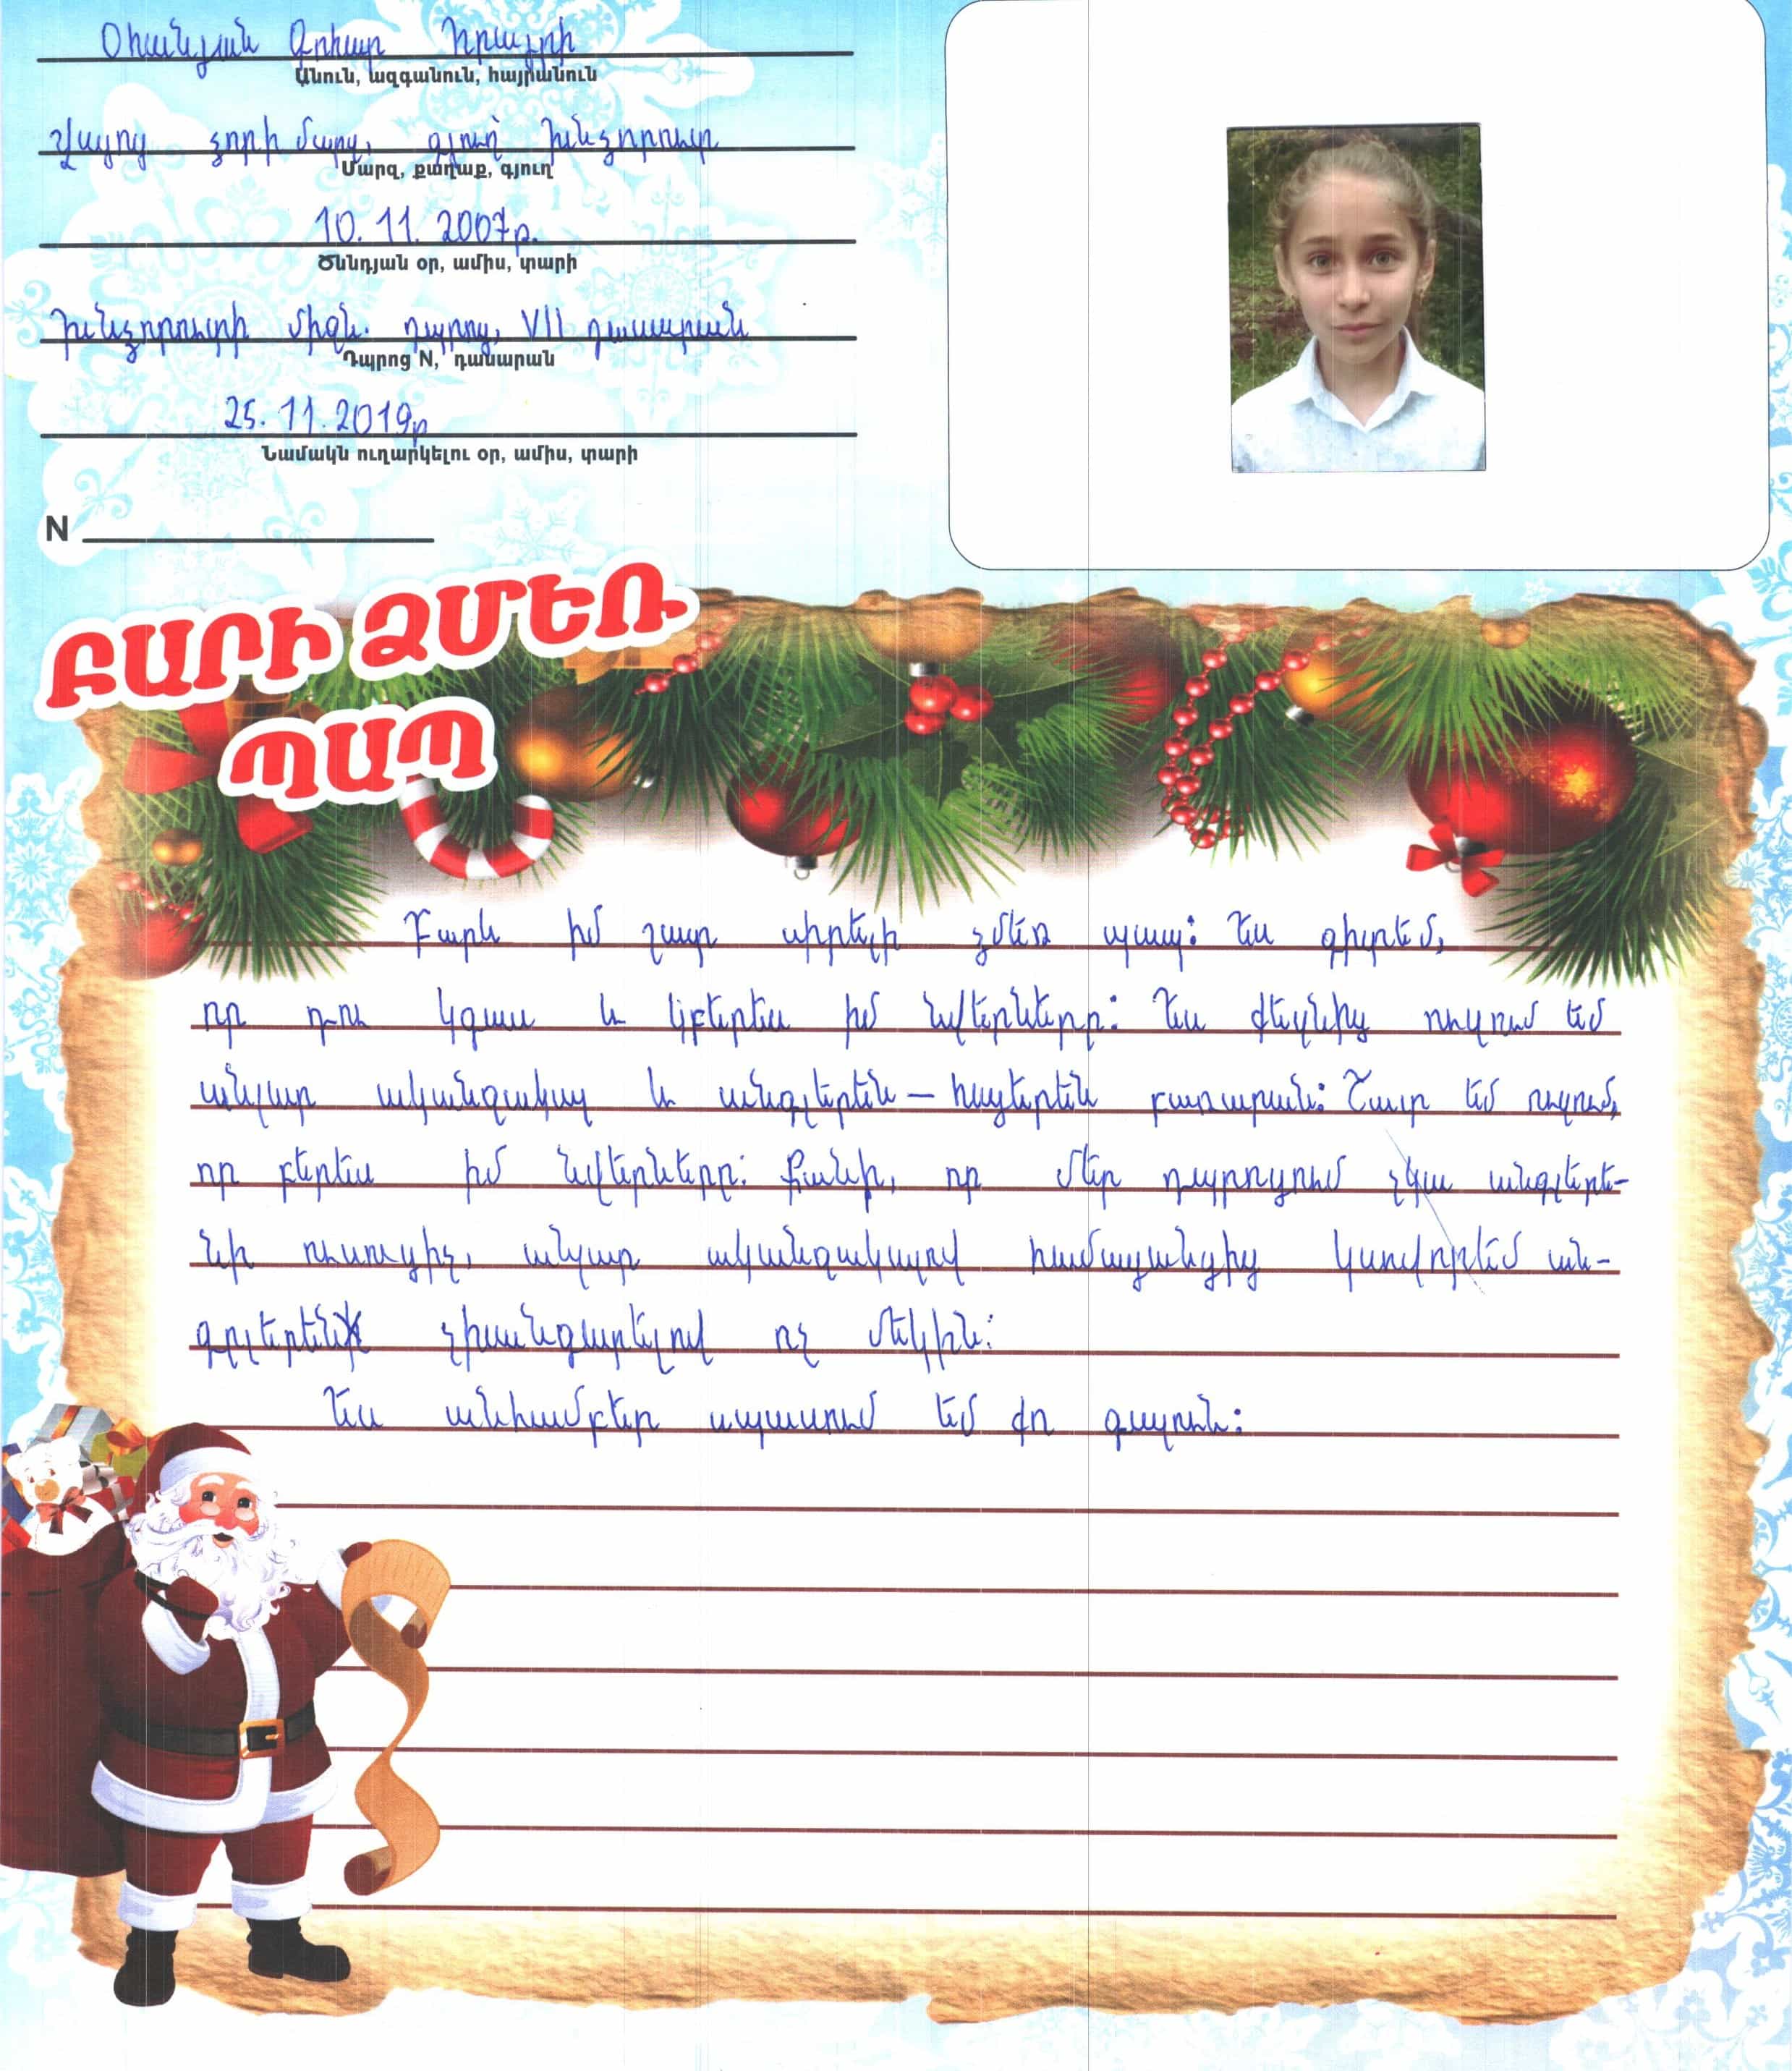 Օհանյան Գոհար Հրայրի
Անուն, ազգանուն, հայրանուն
Վայոց ձորի մարզ, գյուղ Խնձորուտ
Մարզ, քաղաք, գյուղ
10. 11. 2007թ.
Ծննդյան օր, ամիս, տարի
Խնձորուտի միջն. դպրոց, VII դասարան
Դպրոց N, դասարան
25. 11. 2019թ
Նամակն ուղարկելու օր, ամիս, տարի
N
ԲԱՐԻ ՁՄԵՌ
ՊԱՊ
Բարև իմ շատ սիրելի ձմեռ պապ: Ես գիտեմ,
որ դու կգաս և կբերես իմ նվերները: Ես քեզնից ուզում եմ
անլար ականջակալ և անգլերեն – հայերեն բառարան: Շատ եմ ուզում,
որ բերես իմ նվերները: Քանի, որ մեր դպրոցում չկա անգլերե-
նի ուսուցիչ, անլար ականջակալով համացանցից կսովորեմ ան-
գլերեն չխանգարելով ոչ մեկին:
Ես անհամբեր սպասում եմ քո գալուն: